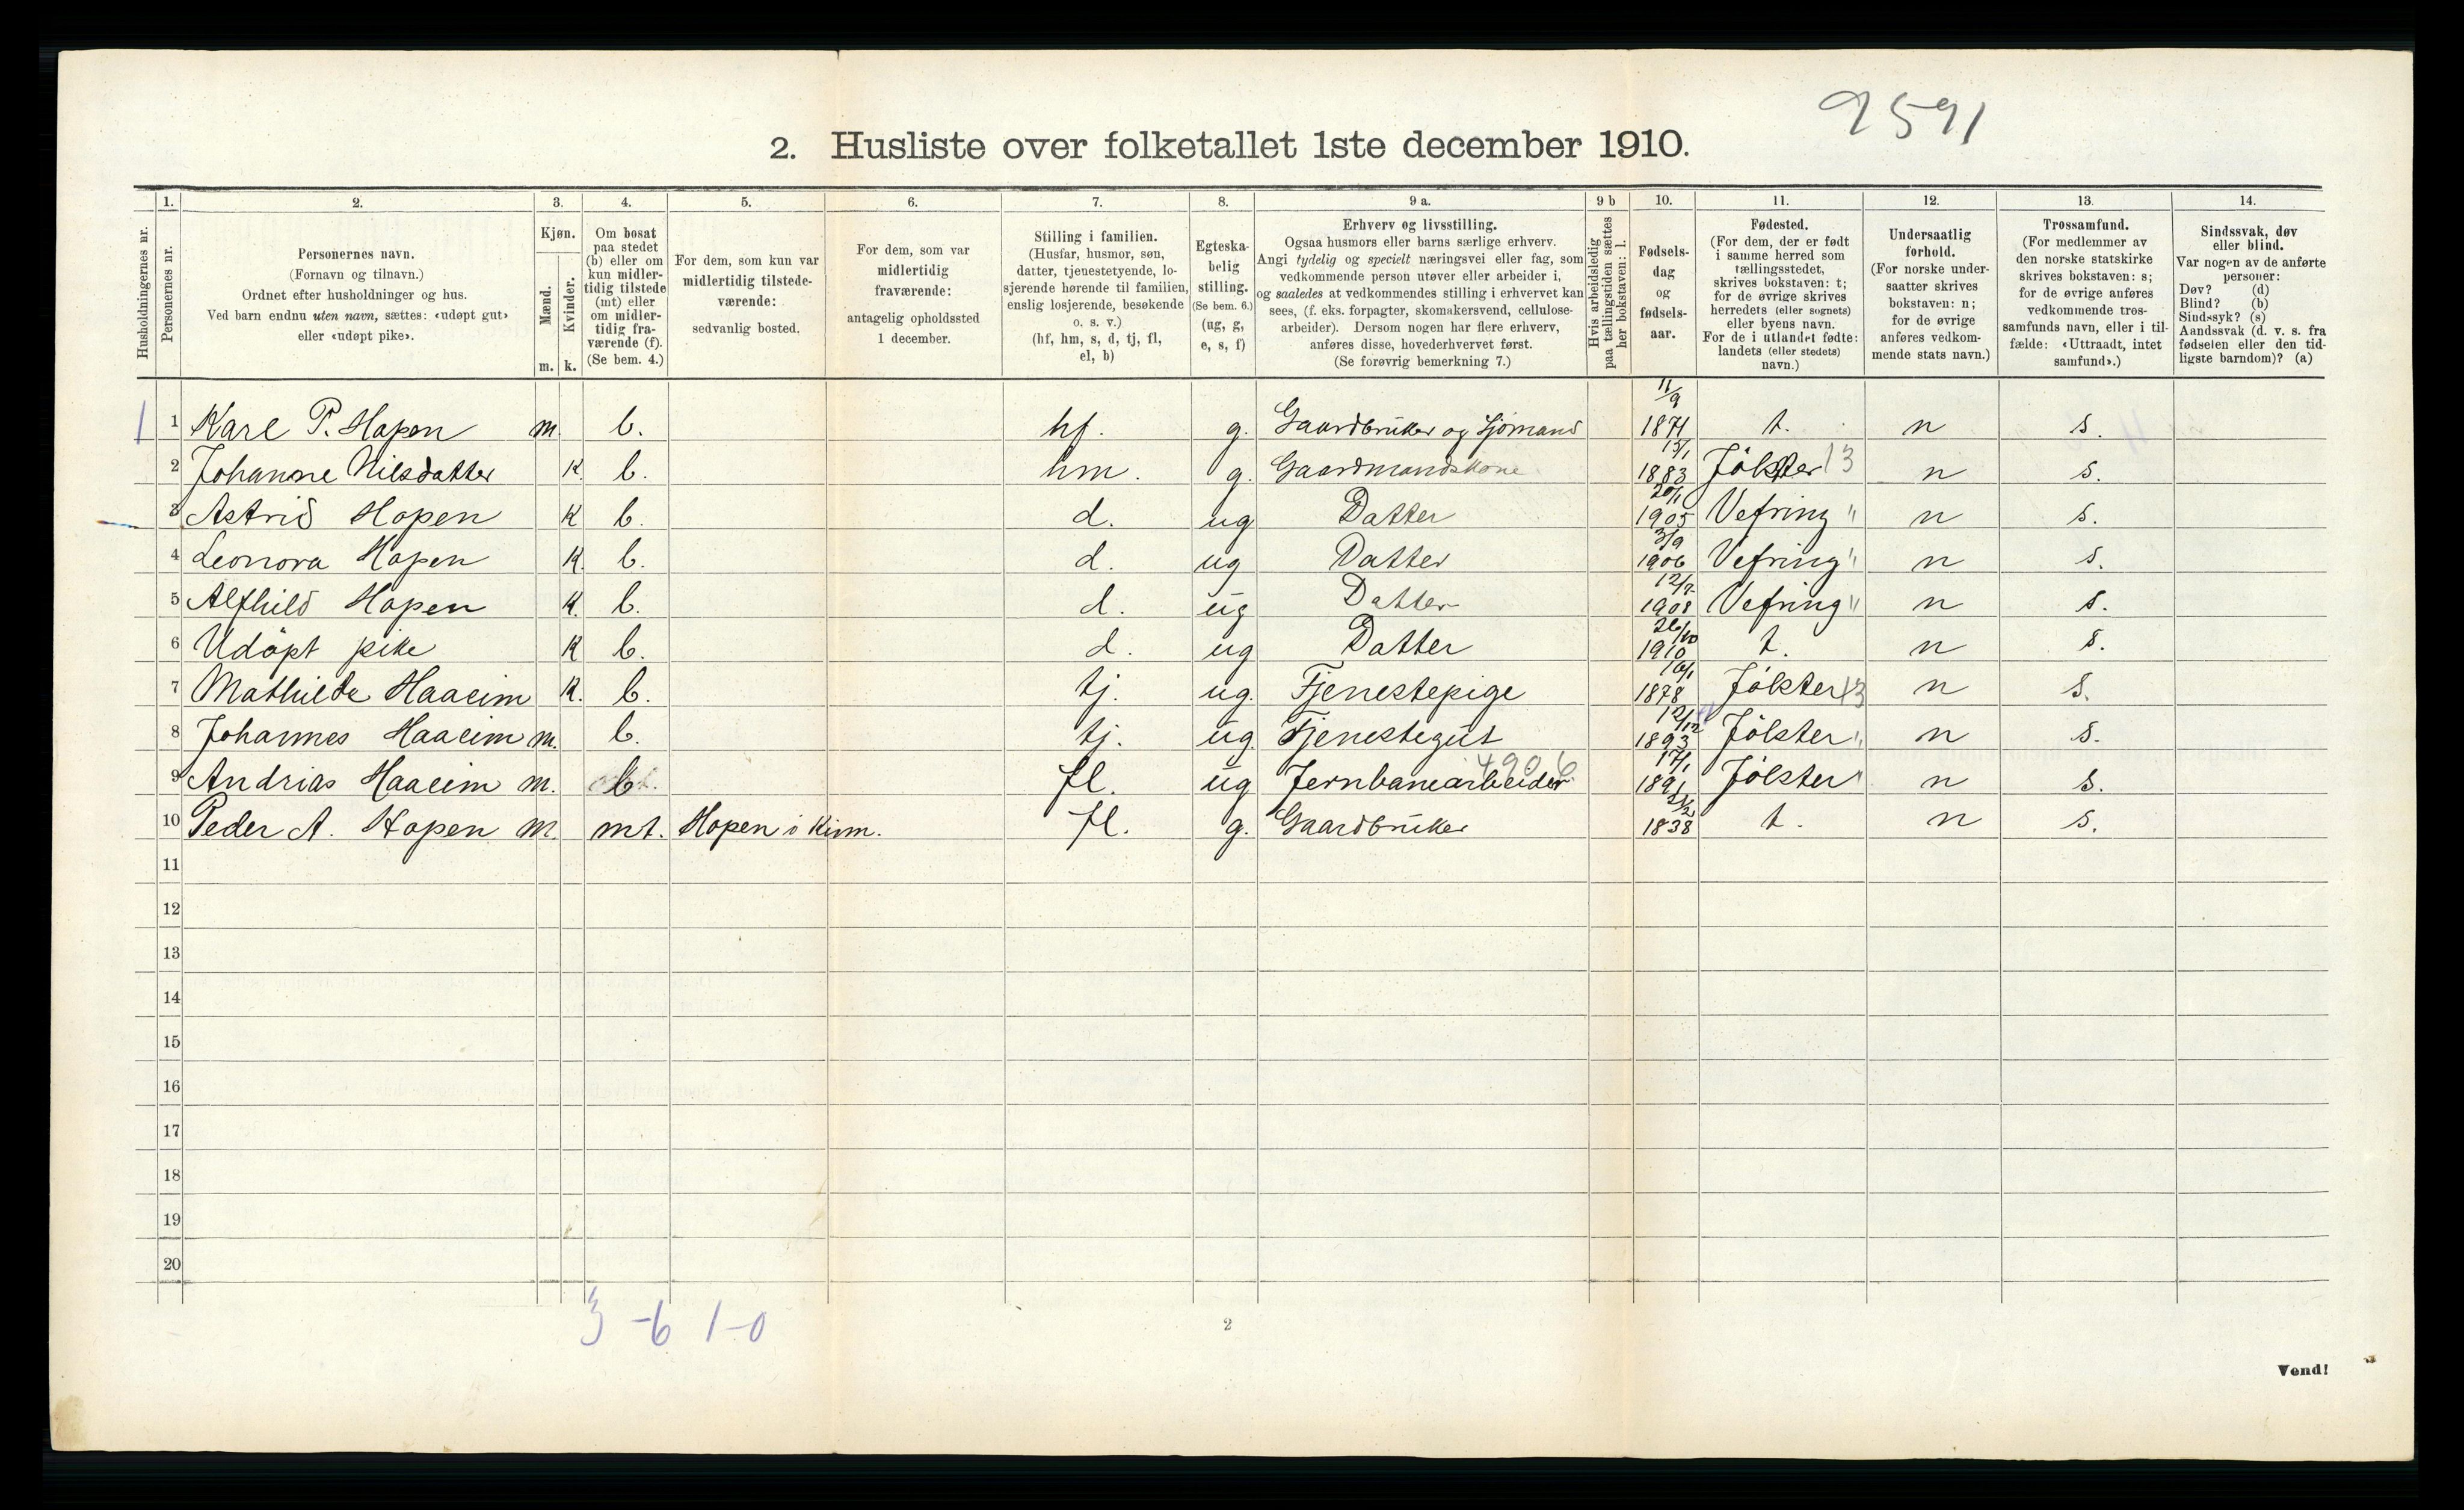 9591
2. Husliste over folketallet 1ste december 1910.
Husholdningernes nr.
1. Personernes nr.
2. Personernes navn.
(Fornavn og tilnavn.)
Ordnet efter husholdninger og hus.
Ved barn endnu uten navn, sættes: «udøpt gut»
eller «udøpt pike».
3. Kjøn.
Mænd. m.
Kvinder. k.
4. Om bosat
paa stedet
(b) eller om
kun midler-
tidig tilstede
(mt) eller
om midler-
tidig fra-
værende (f).
(Se bem. 4.)
5. For dem, som kun var
midlertidig tilstede-
værende:
sedvanlig bosted.
6. For dem, som var
midlertidig
fraværende:
antagelig opholdssted
1 december.
7. Stilling i familien.
(Husfar, husmor, søn,
datter, tjenestetyende, lo-
sjerende hørende til familien,
enslig losjerende, besøkende
o. s. v.)
(hf, hm, s, d, tj, fl,
el, b)
8. Egteska-
belig
stilling.
(Se bem. 6.)
(ug, g,
e, s, f)
9 a. Erhverv og livsstilling.
Ogsaa husmors eller barns særlige erhverv.
Angi tydelig og specielt næringsvei eller fag, som
vedkommende person utøver eller arbeider i,
og saaledes at vedkommendes stilling i erhvervet kan
sees, (f. eks. forpagter, skomakersvend, cellulose-
arbeider). Dersom nogen har flere erhverv,
anføres disse, hovederhvervet først.
(Se forøvrig bemerkning 7.)
9 b Hvis arbeidsledig
paa tællingstiden sættes
her bokstaven: l.
10. Fødsels-
dag
og
fødsels-
aar.
11. Fødested.
(For dem, der er født
i samme herred som
tællingsstedet,
skrives bokstaven: t;
for de øvrige skrives
herredets (eller sognets)
eller byens navn.
For de i utlandet fødte:
landets (eller stedets)
navn.)
12. Undersaatlig
forhold.
(For norske under-
saatter skrives
bokstaven: n;
for de øvrige
anføres vedkom-
mende stats navn.)
13. Trossamfund.
(For medlemmer av
den norske statskirke
skrives bokstaven: s;
for de øvrige anføres
vedkommende tros-
samfunds navn, eller i til-
fælde: «Uttraadt, intet
samfund».)
14. Sindssvak, døv
eller blind.
Var nogen av de anførte
personer:
Døv? (d)
Blind? (b)
Sindssyk? (s)
Aandssvak (d. v. s. fra
fødselen eller den tid-
ligste barndom)? (a)
1 1 Karl P. Hopen m. b. hf. g. Gaardbruker og Sjømand 11/9 1871 t. n s.
2 Johanne Nilsdatter K. b. hm. g. Gaardmandskone 15/1 1883 Jölster 13 n s.
3 Astrid Hopen K b. d. ug Datter 20/1 1905 Vefring " n s.
4 Leonora Hopen K. b. d. ug Datter 3/9 1906 Vefring " n s.
5 Alfhild Hopen K. b. d. ug Datter 12/7 1908 Vefring " n s.
6 Udöpt pike K b. d. ug Datter 26/10 1910 t. n s.
7 Mathilde Haaeim K. b. tj. ug. Tjenestepige 16/1 1878 Jölster 13 n s.
8 Johannes Haaeim m. b. tj. ug. Tjenestegut 12/12 1893 Jölster " n s.
9 Andrias Haaeim m. b. fl. ug Jernbanearbeider 4906 17/1 1891 Jölster " n s.
10 Peder A. Hopen m. mt. Hopen i Kinn. fl. g. Gaardbruker 21/2 1838 t. n s.
11
12
13
14
15
16
17
18
19
20
3 -6 1-0
2
Vend!